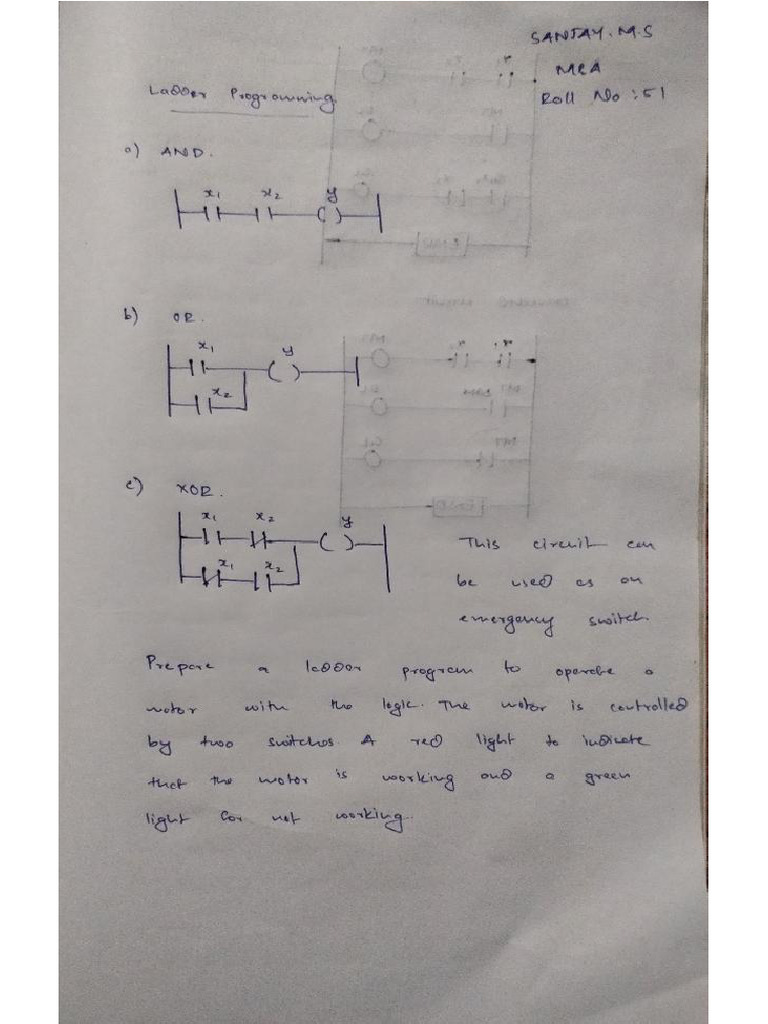 SANJAY. M.S
MCA
Roll No : 51
Ladder Programming
a) AND.
x1 x2 y
b) OR.
x1 y
x2
c) XOR.
x1 x2 y
x1 x2
This circuit can
be used as an
emergency switch.
Prepare a ladder program to operate a
motor with the logic. The motor is controlled
by two switches. A red light to indicate
that the motor is working and a green
light for not working.